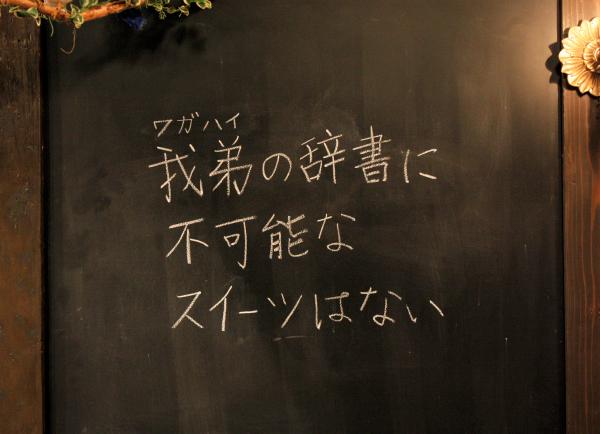 ワガハイ
我弟の辞書に
不可能な
スイーツはない